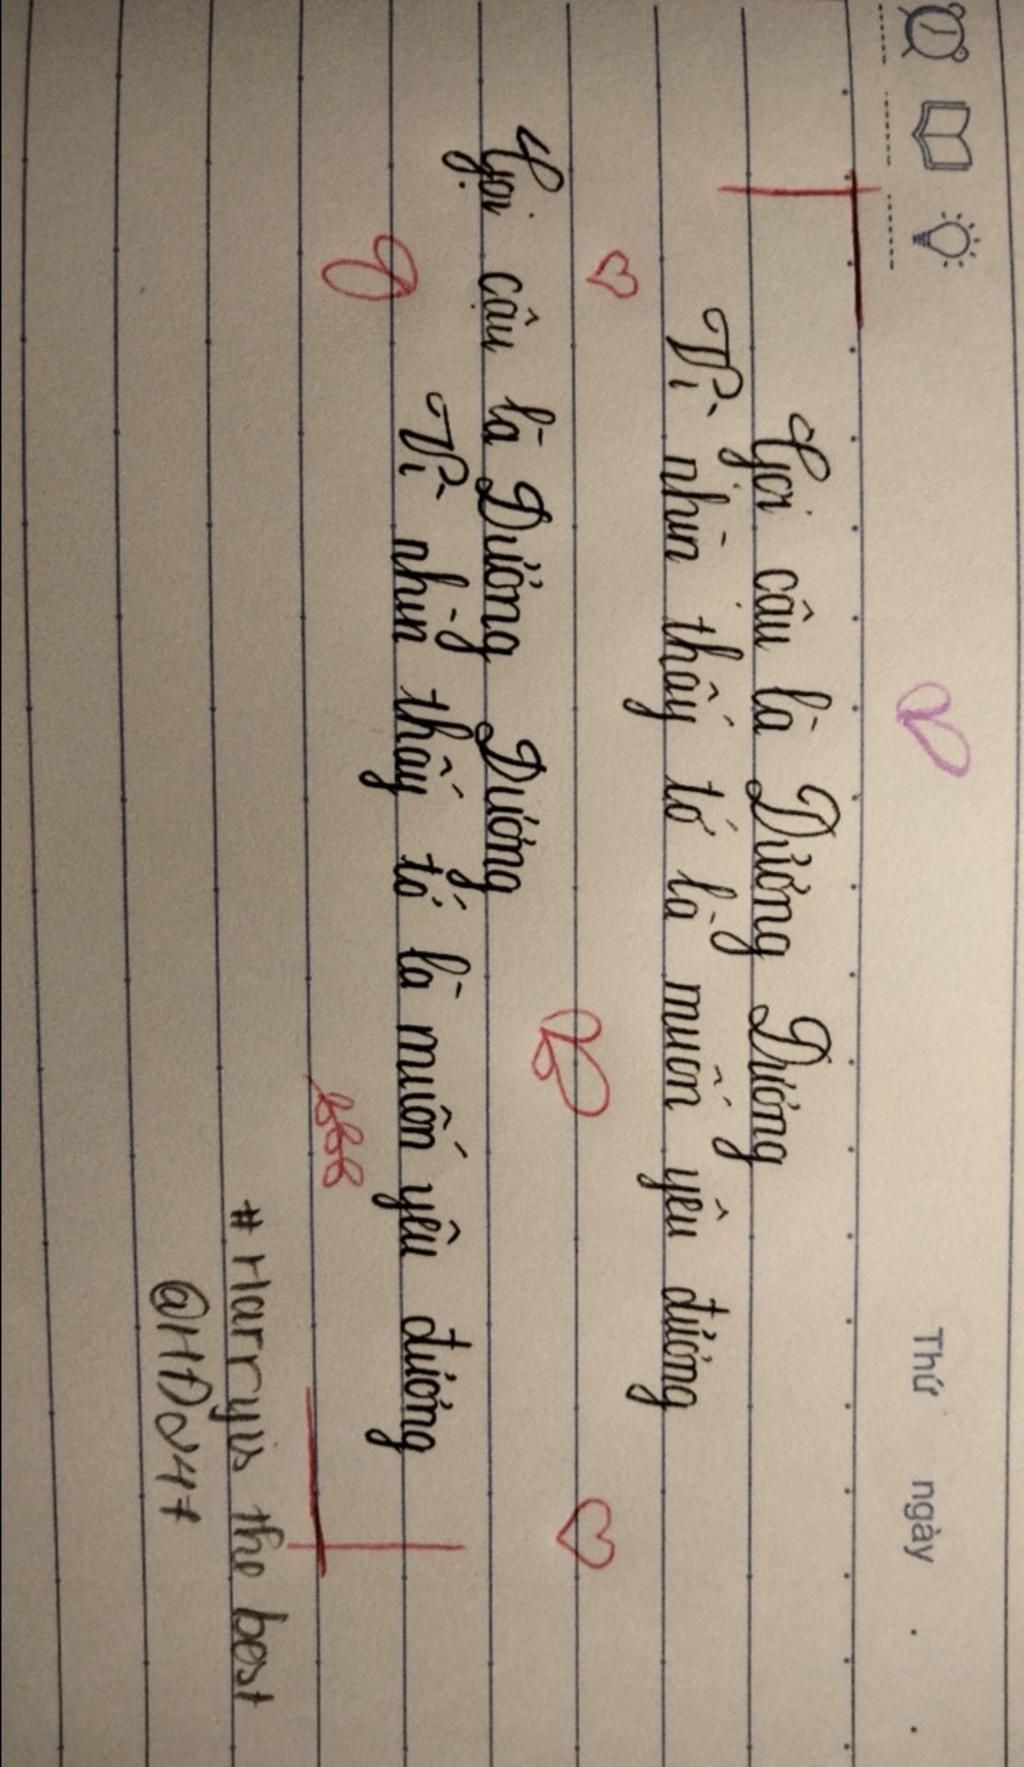 Thứ ngày . .
Gọi cậu là Dương Dương
Vì nhìn thấy tớ là muốn yêu đương
Gọi cậu là Dương Dương
Vì nhìn thấy tớ là muốn yêu đương
#Harryis the best
@HĐ247